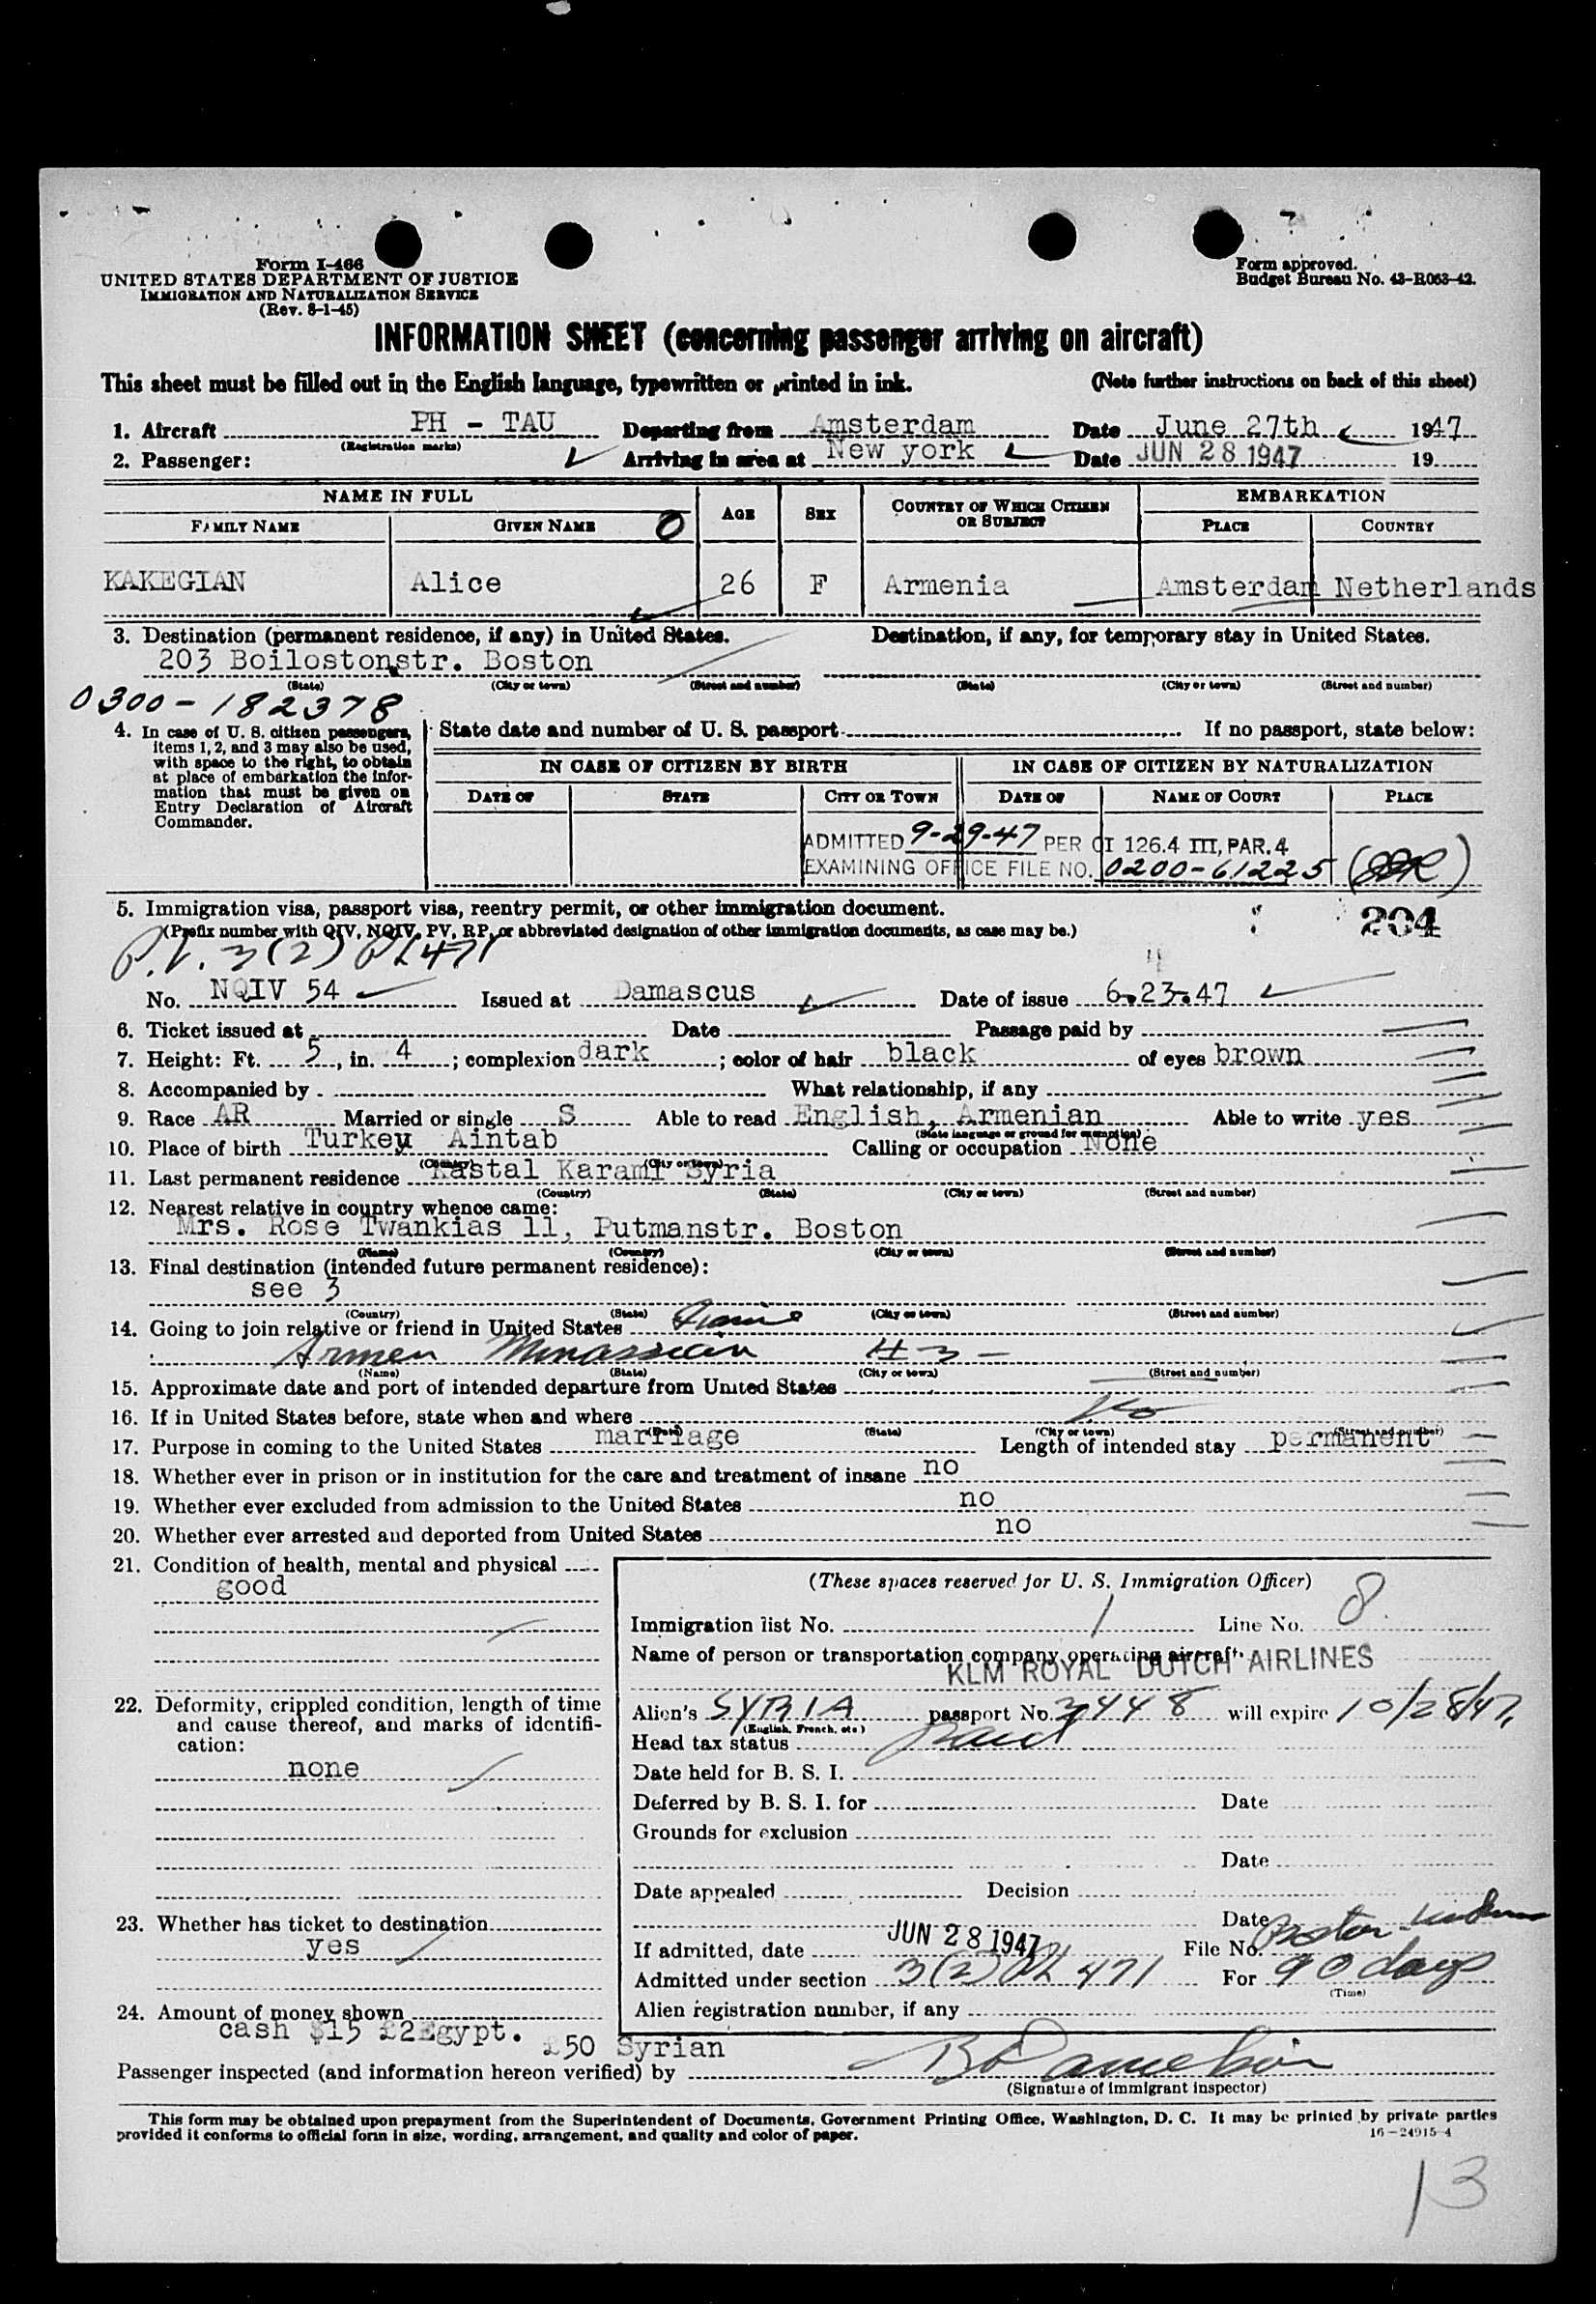 Form I-466
UNITED STATES DEPARTMENT OF JUSTICE
IMMIGRATION AND NATURALIZATION SERVICE
(Rev. 8-1-45)
Form approved.
Budget Bureau No. 43-R063-42.
INFORMATION SHEET (concerning passenger arriving on aircraft)
This sheet must be filled out in the English language, typewritten or printed in ink. (Note further instructions on back of this sheet)
1. Aircraft PH - TAU Departing from Amsterdam Date June 27th 1947
(Registration marks)
2. Passenger: Arriving in area at New york Date JUN 28 1947 19
NAME IN FULL AGE SEX COUNTRY OF WHICH CITIZEN OR SUBJECT EMBARKATION
FAMILY NAME GIVEN NAME PLACE COUNTRY
KAKEGIAN Alice 26 F Armenia Amsterdam Netherlands
3. Destination (permanent residence, if any) in United States. Destination, if any, for temporary stay in United States.
203 Boilostonstr. Boston
(State) (City or town) (Street and number) (State) (City or town) (Street and number)
0300-182378
4. In case of U. S. citizen passengers, items 1, 2, and 3 may also be used, with space to the right, to obtain at place of embarkation the information that must be given on Entry Declaration of Aircraft Commander.
State date and number of U. S. passport If no passport, state below:
IN CASE OF CITIZEN BY BIRTH IN CASE OF CITIZEN BY NATURALIZATION
DATE OF STATE CITY OR TOWN DATE OF NAME OF COURT PLACE
ADMITTED 9-29-47 PER CI 126.4 III, PAR. 4
EXAMINING OFFICE FILE NO. 0200-61225
5. Immigration visa, passport visa, reentry permit, or other immigration document. 204
(Prefix number with QIV, NQIV, PV, RP, or abbreviated designation of other immigration documents, as case may be.)
P.V. 3(2) PL 471
No. NQIV 54 Issued at Damascus Date of issue 6.23.47
6. Ticket issued at Date Passage paid by
7. Height: Ft. 5, in. 4; complexion dark; color of hair black of eyes brown
8. Accompanied by What relationship, if any
9. Race AR Married or single S Able to read English, Armenian Able to write yes
(State language or ground for exemption)
10. Place of birth Turkey Aintab Calling or occupation None
(Country) (City or town)
11. Last permanent residence Kastal Karami Syria
(Country) (State) (City or town) (Street and number)
12. Nearest relative in country whence came:
Mrs. Rose Twankias 11, Putmanstr. Boston
(Name) (Country) (City or town) (Street and number)
13. Final destination (intended future permanent residence):
see 3
(Country) (State) (City or town) (Street and number)
14. Going to join relative or friend in United States
Armen Minassian # 3 -
(Name) (State) (City or town) (Street and number)
15. Approximate date and port of intended departure from United States
16. If in United States before, state when and where No
(Date) (State) (City or town) (Street and number)
17. Purpose in coming to the United States marriage Length of intended stay permanent
18. Whether ever in prison or in institution for the care and treatment of insane no
19. Whether ever excluded from admission to the United States no
20. Whether ever arrested and deported from United States no
21. Condition of health, mental and physical
good
22. Deformity, crippled condition, length of time and cause thereof, and marks of identification:
none
23. Whether has ticket to destination
yes
24. Amount of money shown
cash $15 £2Egypt. £50 Syrian
(These spaces reserved for U. S. Immigration Officer)
Immigration list No. 1 Line No. 8
Name of person or transportation company operating aircraft
KLM ROYAL DUTCH AIRLINES
Alien's SYRIA passport No. 3448 will expire 10/28/47
(English, French, etc.)
Head tax status Paid
Date held for B. S. I.
Deferred by B. S. I. for Date
Grounds for exclusion
Date
Date appealed Decision
Date
If admitted, date JUN 28 1947 File No. Boston
Admitted under section 3(2) PL 471 For 90 days
(Time)
Alien registration number, if any
Passenger inspected (and information hereon verified) by
(Signature of immigrant inspector)
This form may be obtained upon prepayment from the Superintendent of Documents, Government Printing Office, Washington, D. C. It may be printed by private parties
provided it conforms to official form in size, wording, arrangement, and quality and color of paper.
16-24915-4
13